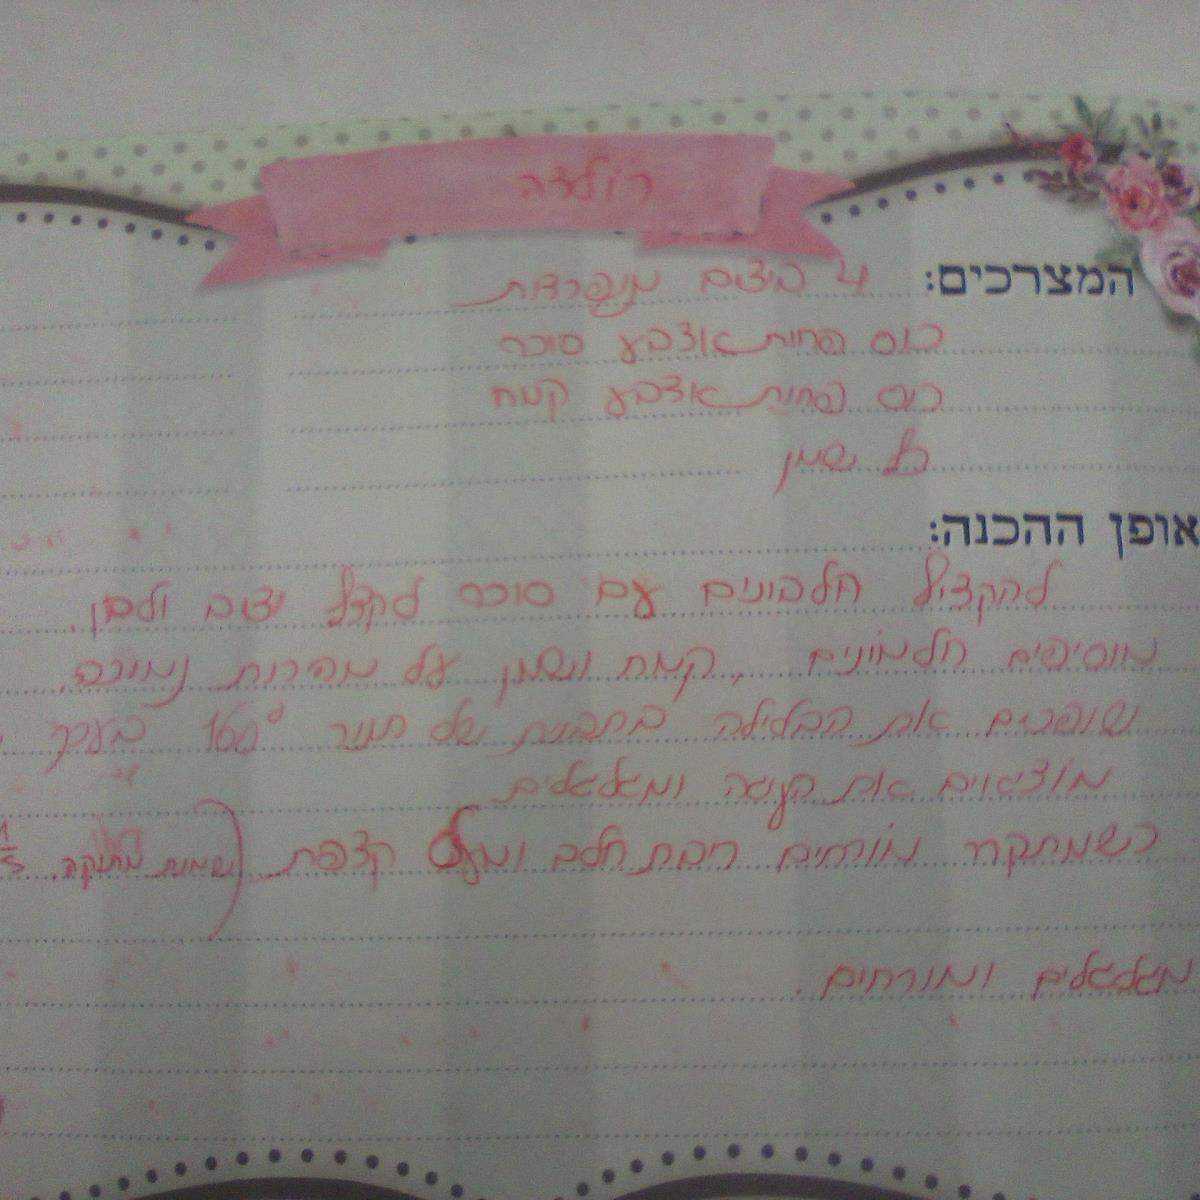 רולדה
המצרכים: 4 ביצים מופרדות
כוס פחות אצבע סוכר
כוס פחות אצבע קמח
שמן
אופן ההכנה:
להקציף חלבונים עם סוכר לקצף יציב ולבן.
מוסיפים חלמונים, קמח ושמן על מהירות נמוכה.
שופכים את הבלילה בתבנית של תנור 160° בערך
מוציאים את העוגה ומגלגלים
כשמתקרר מורחים ריבת חלב ומעל קצפת (שמנת מתוקה
מגלגלים ומורחים.